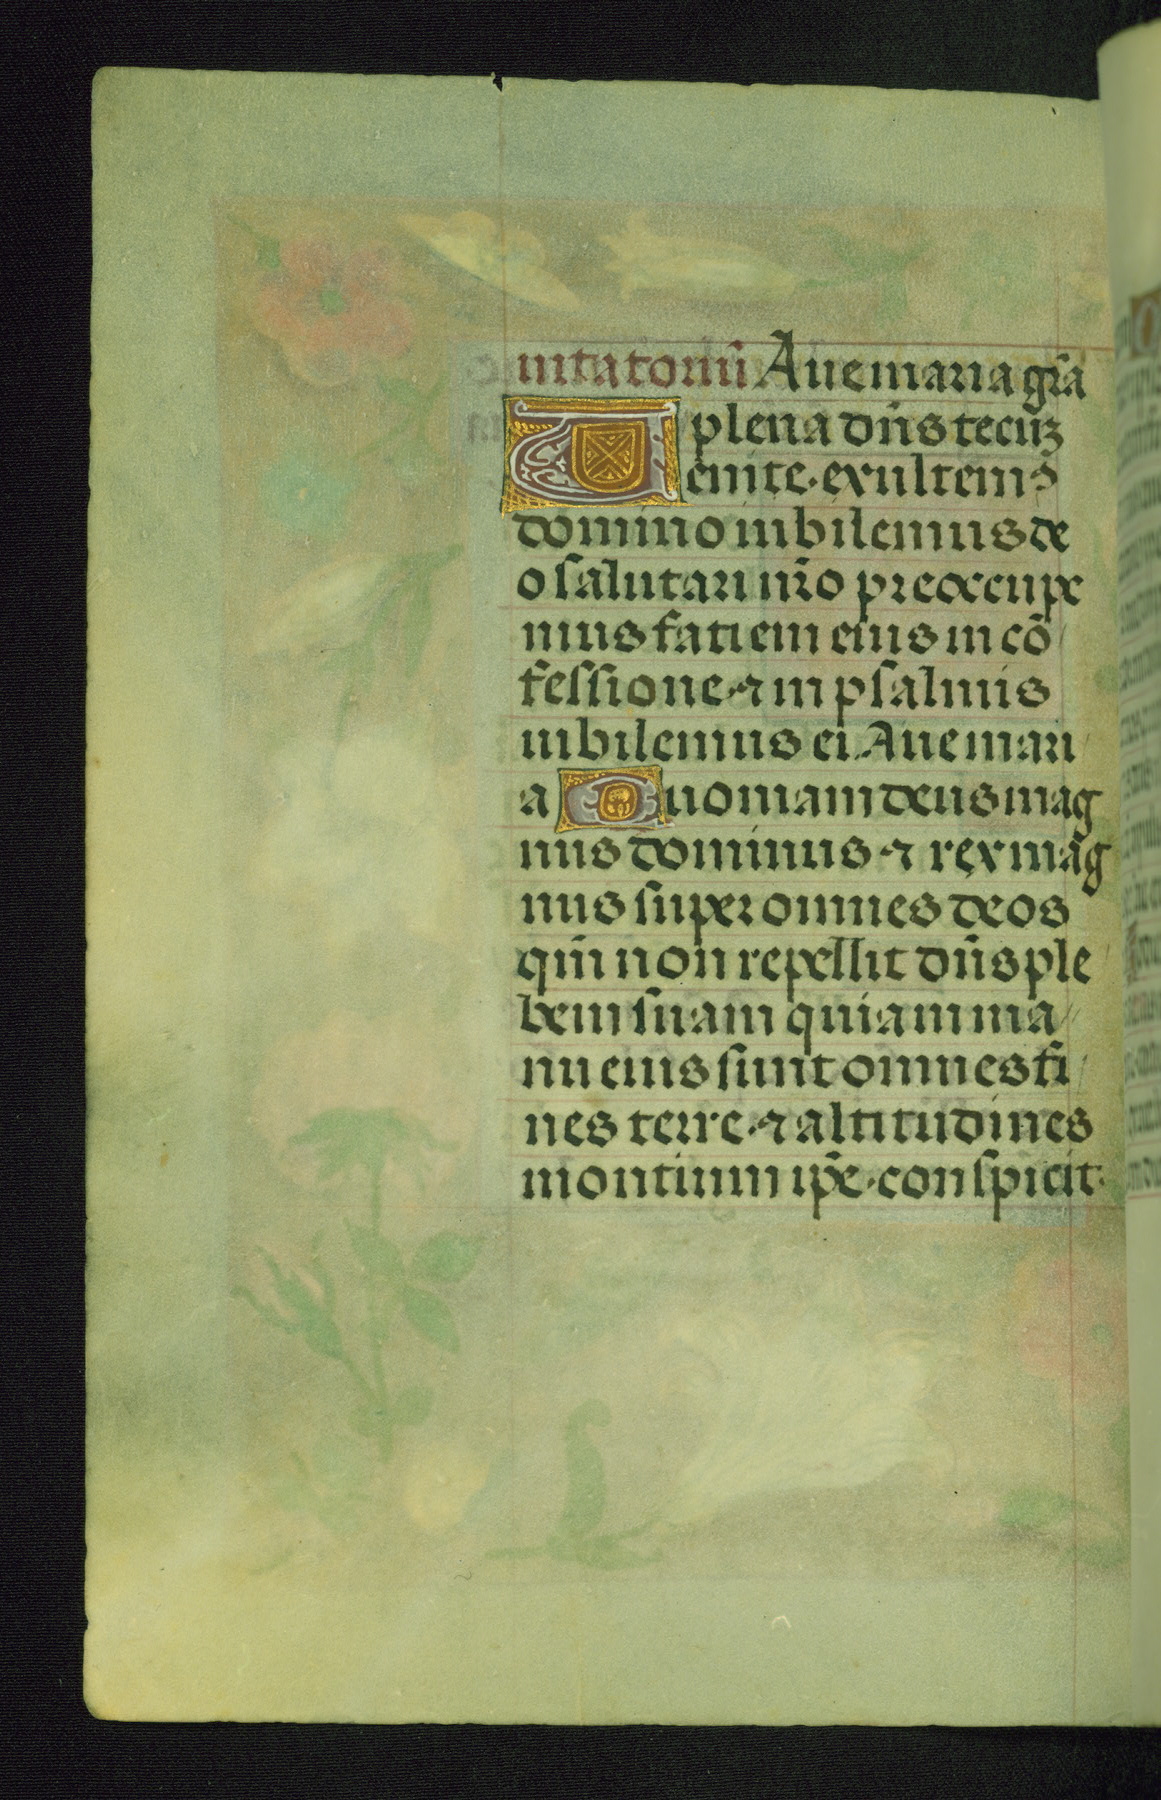 uitatoriū Aue maria gr̄a
plena dn̄s tecūʒ
Venite·exultemꝰ
domino iubilemus de
o salutari nr̄o preoccupe
mus faciem eius in cō
fessione·⁊ in psalmis
iubilemus ei. Aue mari
a Quoniam deus mag
nus dominus·⁊ rex māg
nus super omnes deos
qm̄ non repellit dn̄s ple
bem suam quia in ma
nu eius sunt omnes fi
nes terre·⁊ altitudines
montium ip̄e·conspicit·